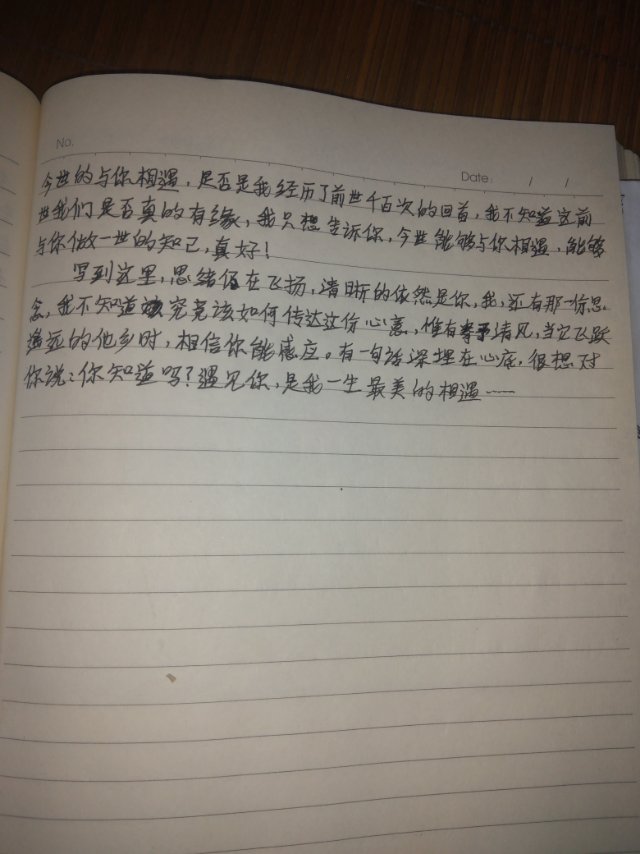 No.
Date: / /
今世的与你相遇，是否是我经历了前世千百次的回首，我不知道这前
世我们是否真的有缘，我只想告诉你，今世能够与你相遇，能够
与你做一世的知己，真好！
写到这里，思绪仍在飞扬，清晰的依然是你，我，还有那一份思
念，我不知道究竟该如何传达这份心意，惟有寄予清风，当它飞跃
遥远的他乡时，相信你能感应。有一句话深埋在心底，很想对
你说：你知道吗？遇见你，是我一生最美的相遇……